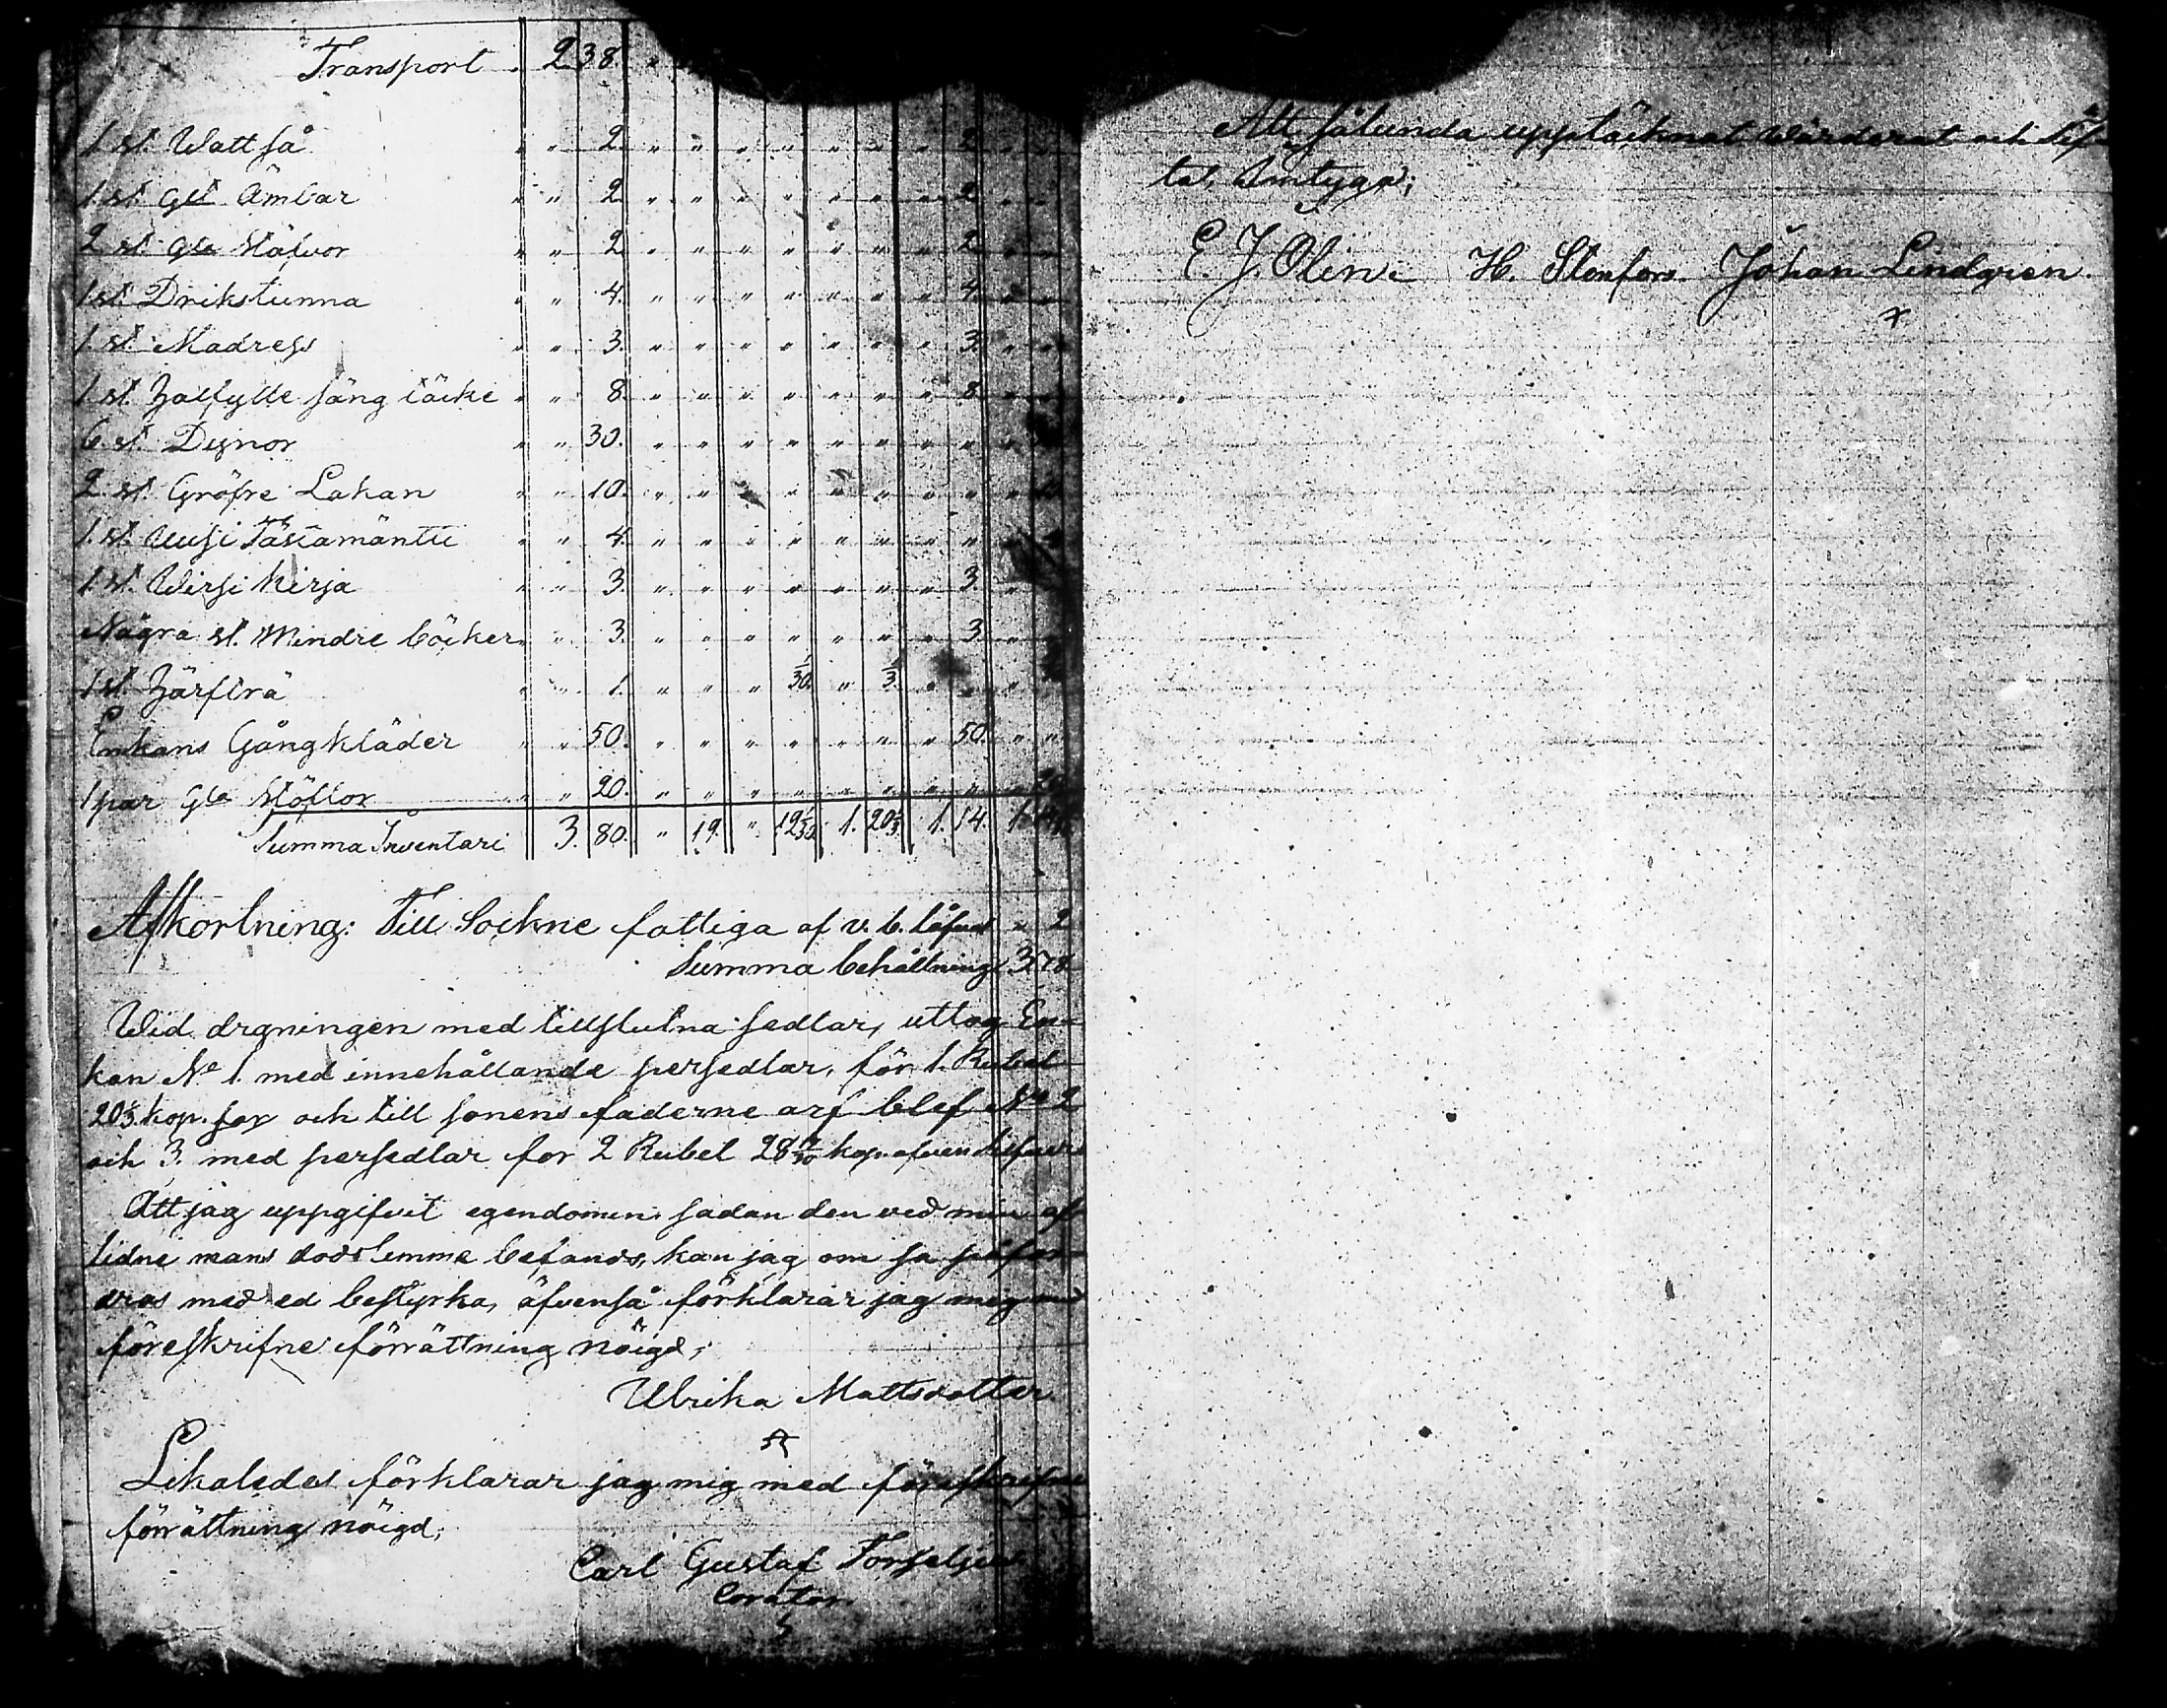 Transport 2 38
1 st. Wattså " " 2 " " " " " " " 2 " "
1 st. Glt Ämbar " " 2 " " " " " " " 2 " "
2 st. Gla Stäfvor " " 2 " " " " " " " 2 " "
1 st. Drikstunna " " 4. " " " " " " " 4. " "
1. st. Madress " " 3. " " " " " " " 3. " "
1 st. säng täcke " " 8. " " " " " " " 8. " "
6. st. Dynor " " 30. " " " " " " " "
2. st. Gröfre Lakan " " 10. " " " " " " " "
1. st. Uusi Tästamäntti " " 4. " " " " " " " "
1. st. Wirsi Kirja " " 3. " " " " " " " 3. "
Några st. Mindre böcker " " 3. " " " " " " " 3. "
1 st. " " 1. " " " 1/30. " 1/3. " "
Enkans Gångkläder " " 50. " " " " " " " 50. " "
1 par Gla Stöflor " " 20. " " " " " " " "
Summa Inventari 3. 80. " 19. " 19 1/30. 1. 20 1/3. 1. 14. 1.
Afkortning: Till Sockne fattiga af v. b. " 2
Summa behållning 3.78
Wid dragningen med tillslutna sedlar, uttog En-
kan No 1. med innehållande persedlar, för 1. Rubel
20 1/3. kop. och till sonens faderne arf blef No 2
och 3. med persedlar för 2 Rubel 28 kop.
Att jag uppgifvit egendomen sådan den ved min af-
lidne mans dödstemma befands, kan jag om så påfor-
dras med ed bestyrka, äfvenså förklarar jag mig med
föreskrifne förrättning nöigd;
Ulrika Mattsdotter
Likaledes förklarar jag mig med föreskrifne
förrättning nöigd;
Carl Gustaf
Corator
Att sålunda upptäcknat Wärderat och
tat, Intyga;
E. J. Olin. H. Stenfors Johan Lindgren.
x